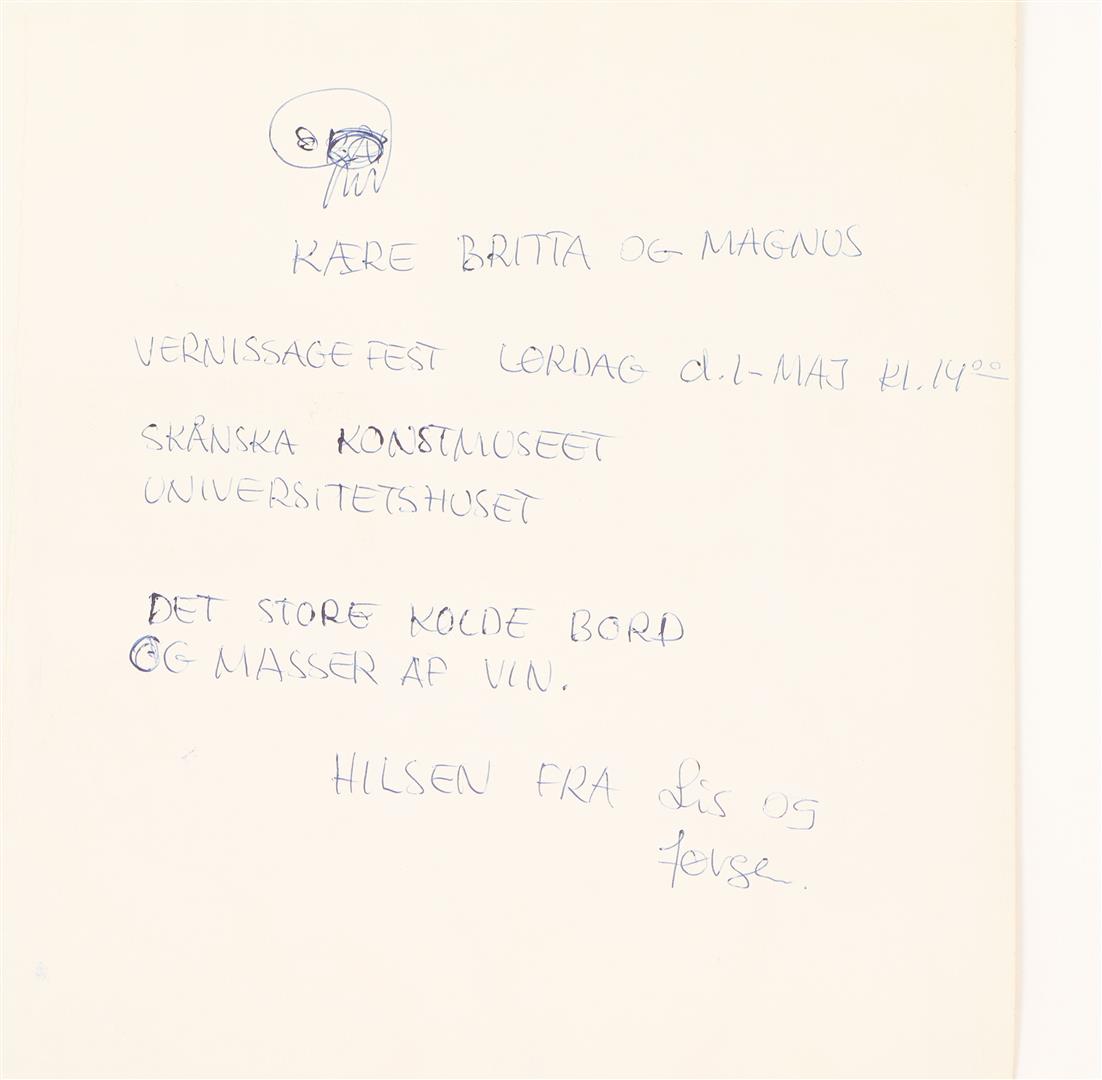 KÆRE BRITTA OG MAGNUS
VERNISSAGE FEST LØRDAG d. 1- MAJ kl. 14⁰⁰
SKÅNSKA KONSTMUSEET
UNIVERSITETSHUSET
DET STORE KOLDE BORD
OG MASSER AF VIN.
HILSEN FRA Lis og
Jørgen.